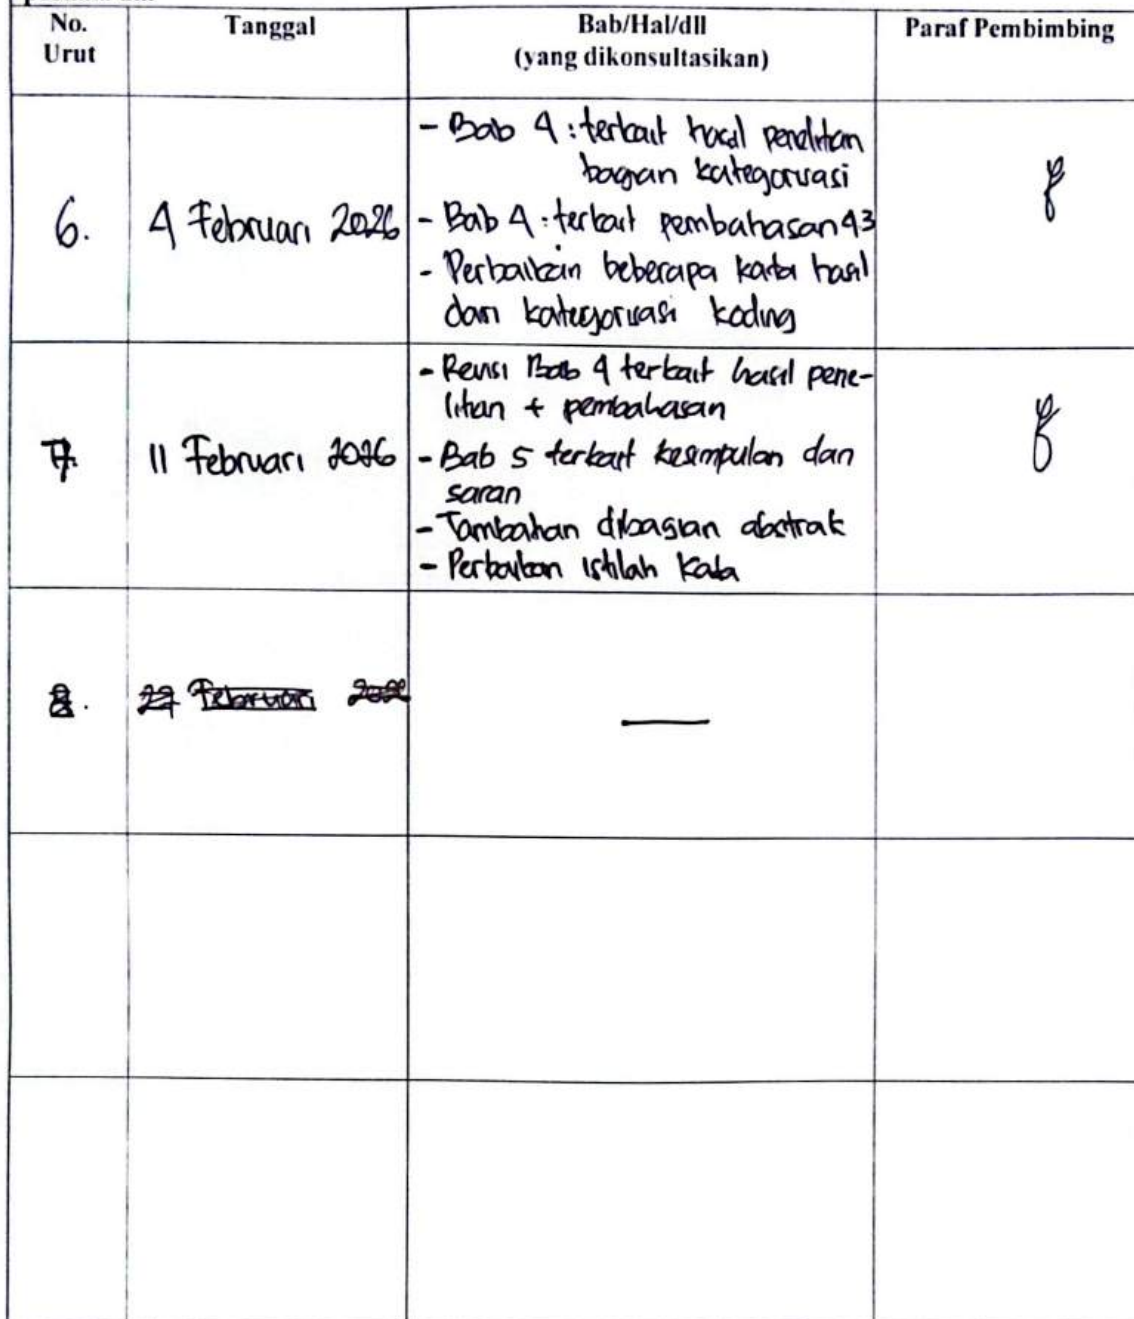 No.
Urut
Tanggal
Bab/Hal/dll
(yang dikonsultasikan)
Paraf Pembimbing
6.
4 Februari 2026
- Bab 4 : terkait hasil penelitian
bagian kategorisasi
- Bab 4 : terkait pembahasan 43
- Perbaikan beberapa kata hasil
dari kategorisasi koding
7.
11 Februari 2026
- Revisi Bab 4 terkait hasil pene-
litian + pembahasan
- Bab 5 terkait kesimpulan dan
saran
- Tambahan dibagian abstrak
- Perbaikan istilah kata
8.
27 Februari 2026